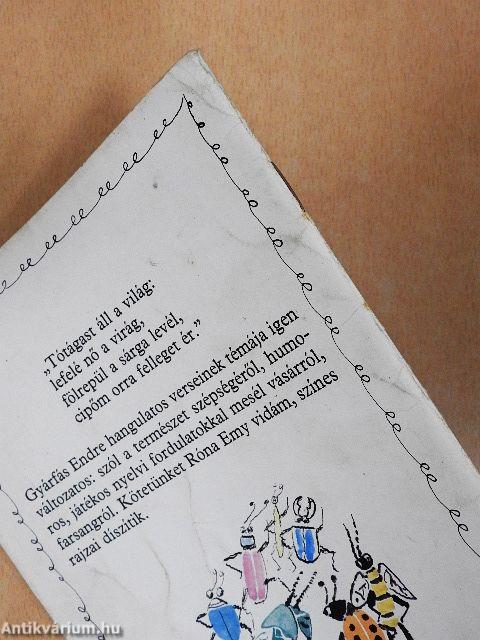 „Tótágast áll a világ:
lefelé nő a virág,
fölrepül a sárga levél,
cipőm orra felleget ér.”
Gyárfás Endre hangulatos verseinek témája igen
változatos: szól a természet szépségéről, humo-
ros, játékos nyelvi fordulatokkal mesél vásárról,
farsangról. Kötetünket Róna Emy vidám, színes
rajzai díszítik.
Antikvárium.hu